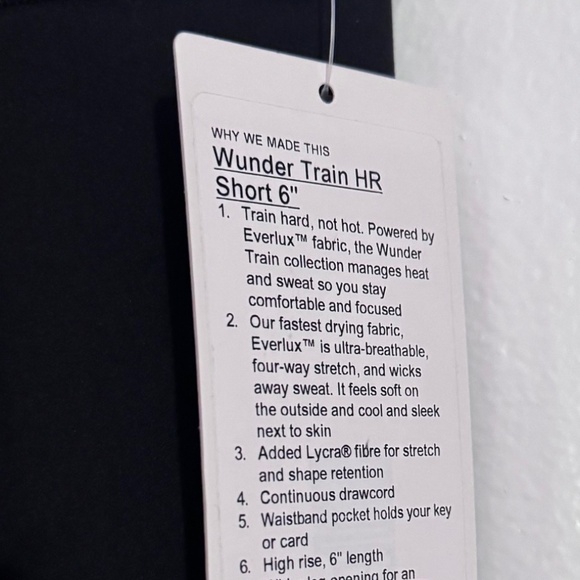 WHY WE MADE THIS
Wunder Train HR
Short 6"
1. Train hard, not hot. Powered by
Everlux™ fabric, the Wunder
Train collection manages heat
and sweat so you stay
comfortable and focused
2. Our fastest drying fabric,
Everlux™ is ultra-breathable,
four-way stretch, and wicks
away sweat. It feels soft on
the outside and cool and sleek
next to skin
3. Added Lycra® fibre for stretch
and shape retention
4. Continuous drawcord
5. Waistband pocket holds your key
or card
6. High rise, 6" length
opening for an